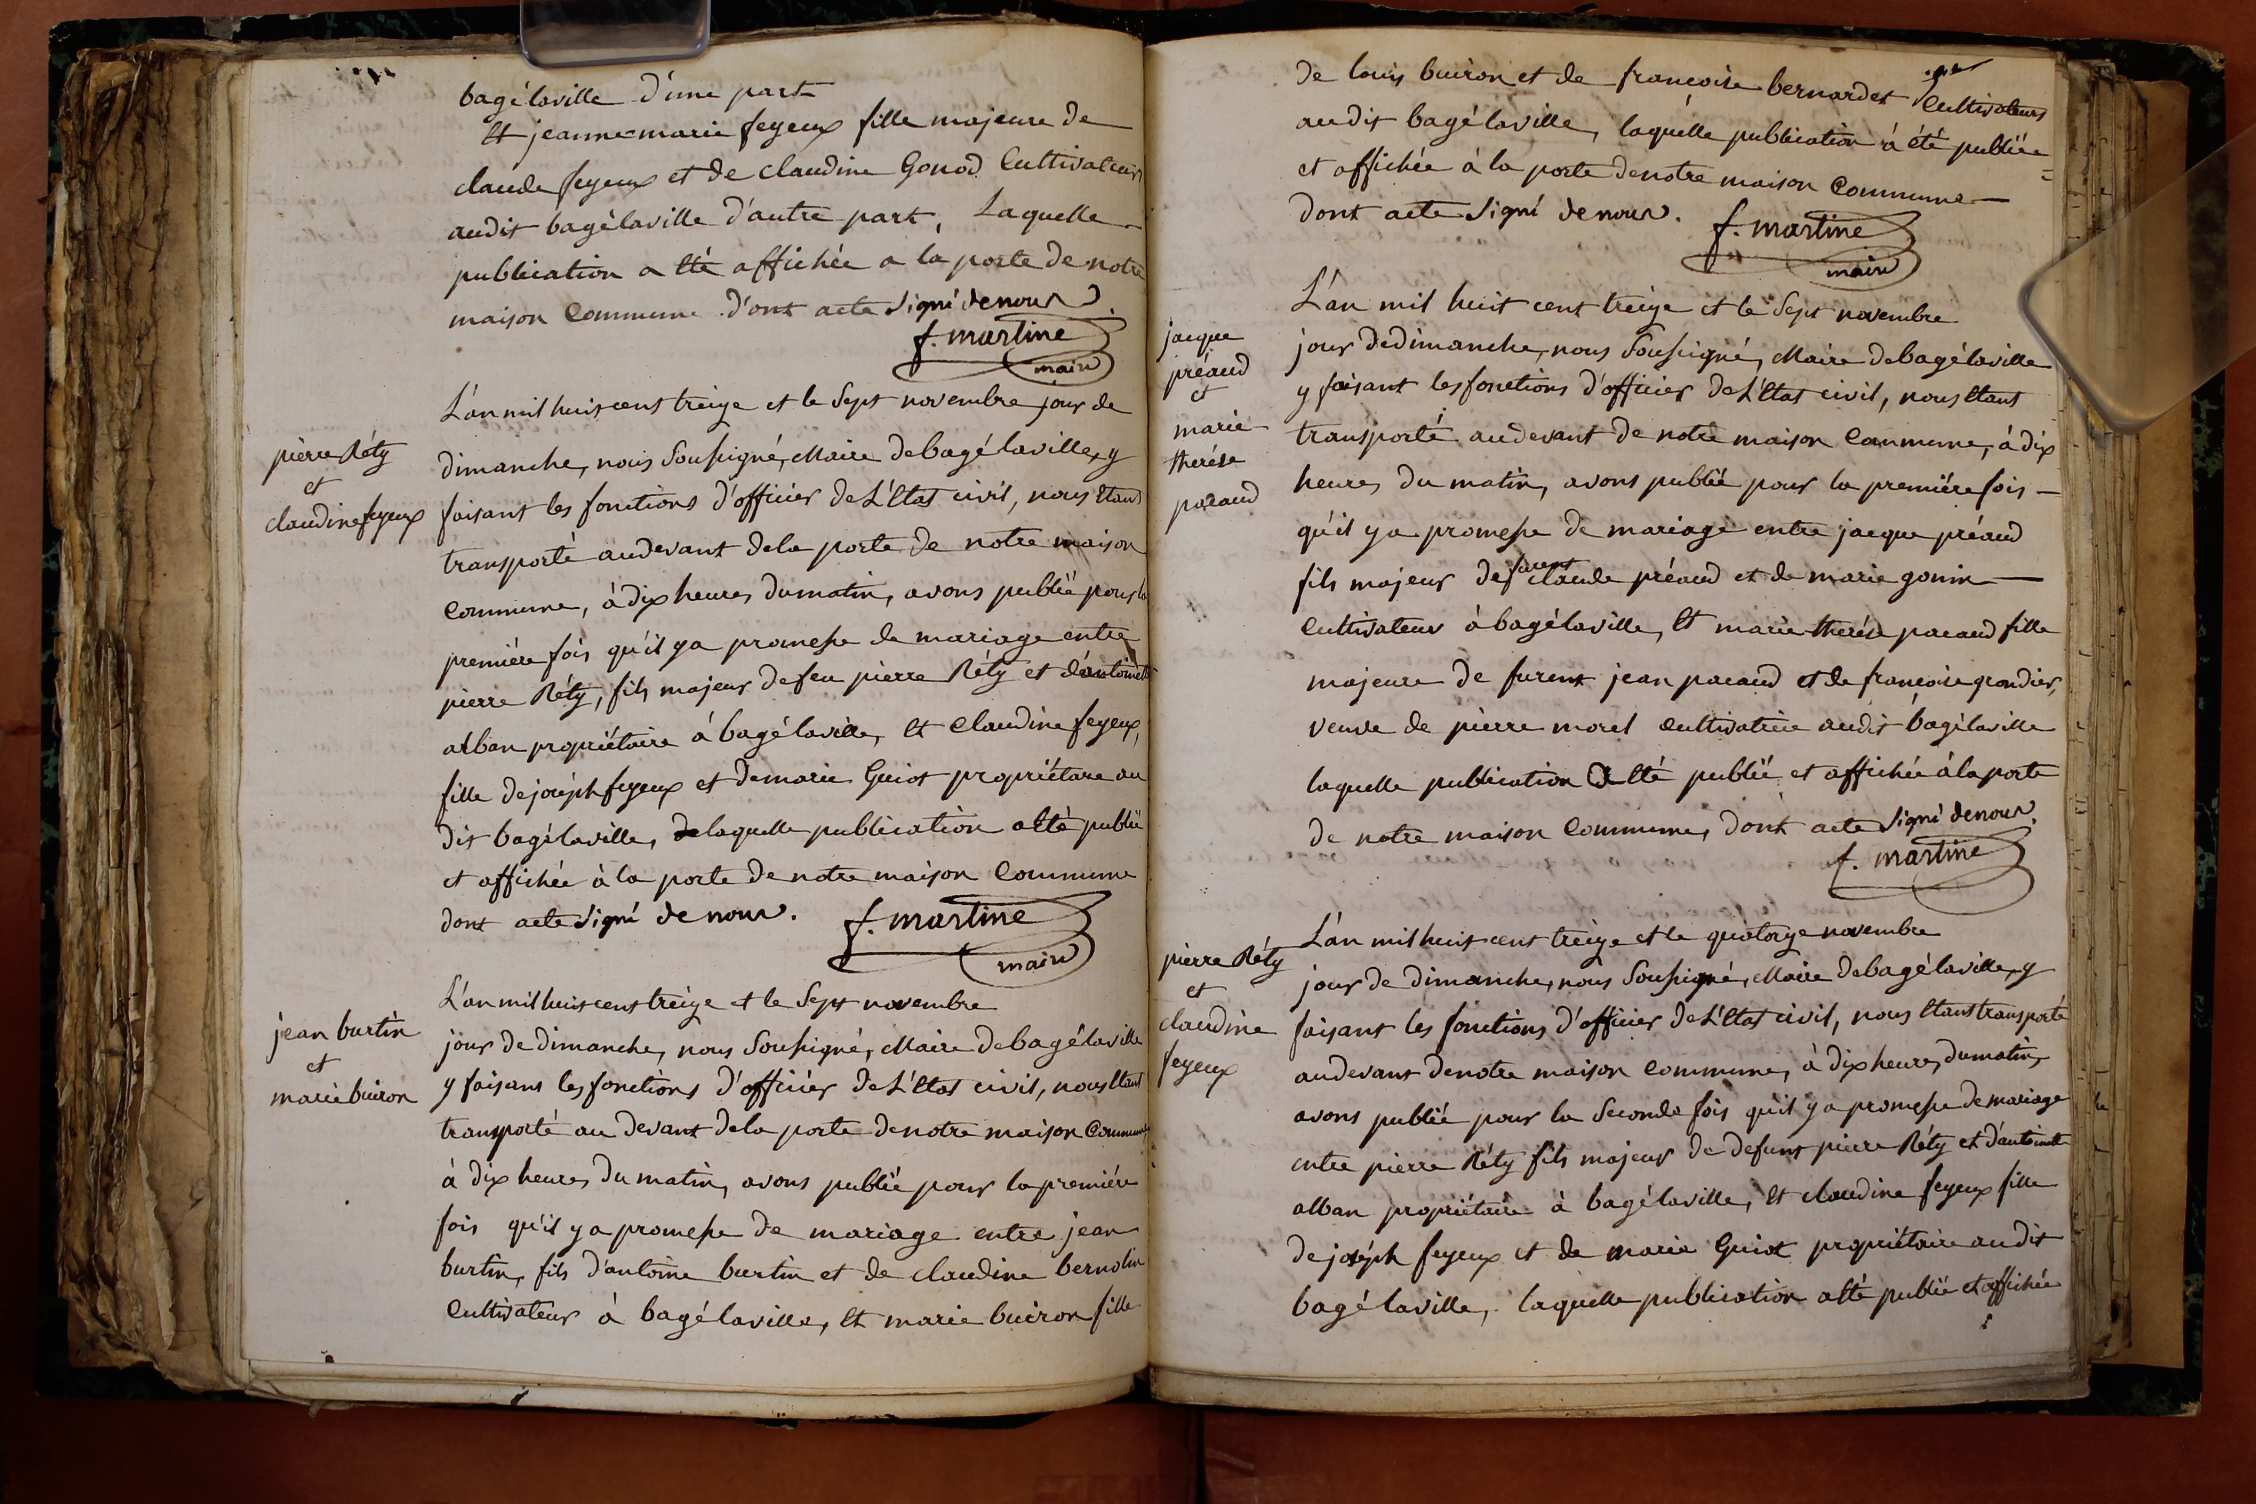 bagélaville d'une part
Et jeanne marie feyeux fille majeure de
claude feyeux et de claudine Gonod Cultivateurs
audit bagélaville d'autre part, Laquelle
publication a été affichée a la porte de notre
maison Commune d'ont acte signé denous.
f. martine
maire
L'an mil huit cent treize et le Sept novembre jour de
pierre Réty
et
claudine feyeux
dimanche, nous Soussigné, Maire debagélaville, y
faisant les fonctions d'officier deL'Etat civil, nous Etant
transporté audevant dela porte de notre maison
commune, à dix heures dumatin, avons publié pour la
première fois qu'il ya promesse de mariage entre
pierre Réty, fils majeur defeu pierre Réty et d'antoinette
alban propriétaire à bagélaville, Et Claudine feyeux,
fille dejoséph feyeux et demarie Guiot propriétaire au
dit bagélaville, delaquelle publication aété publié
et affichée à la porte de notre maison Commune
dont acte signé de nous.
f. martine
maire
L'an mil huit cent treize et le Sept novembre
jean burtin
et
marie buiron
jour de dimanche, nous Soussigné, Maire debagélaville
y faisant les fonctions d'officier deL'Etat civil, nous Etant
transporté au devant dela porte denotre maison Commune
à dix heures du matin, avons publié pour la première
fois qu'il ya promesse de mariage entre jean
burtin, fils d'antoine burtin et de claudine bernolin
Cultivateur à bagélaville, Et marie buiron fille
de louis buiron et de francoise bernardet Cultivateurs
audit bagélaville, laquélle publication à été publiée
et affichée à la porte denotre maison Commune
dont acte signé denous.
f. martine
maire
L'an mil huit cent treize et le Sept novembre
jacque
préaud
et
marie
therése
pacaud
jour dedimanche, nous Soussigné, Maire debagélaville
y faisant les fonctions d'officier deL'Etat civil, nous Etant
transporté audevant de notre maison Commune, à dix
heures du matin, avons publié pour la première fois
qu'il ya promesse de mariage entre jacque préaud
fils majeur de furent claude préaud et de marie gonin
Cultivateur à bagélaville, Et marie therése pacaud fille
majeure de furent jean pacaud et de françoise grondier,
veuve de pierre morel cultivatrice audit bagélaville
laquelle publication a Eté publié et affichée àla porte
de notre maison Commune, dont acte signé denous.
f. martine
L'an mil huit cent treize et le quatorze novembre
pierre Réty
et
claudine
feyeux
jour de dimanche, nous Soussigné, Maire debagélaville, y
faisant les fonctions d'officier deL'Etat civil, nous Etant transporté
audevant denotre maison Commune, à dix heures dumatin,
avons publié pour la Seconde fois qu'il ya promesse demariage
entre pierre Réty fils majeur de defunt pierre Réty et d'antoinette
alban propriétaire à bagélaville, Et claudine feyeux fille
de joséph feyeux et de marie Guiot propriétaire audit
bagélaville, laquelle publication aété publié et affichée